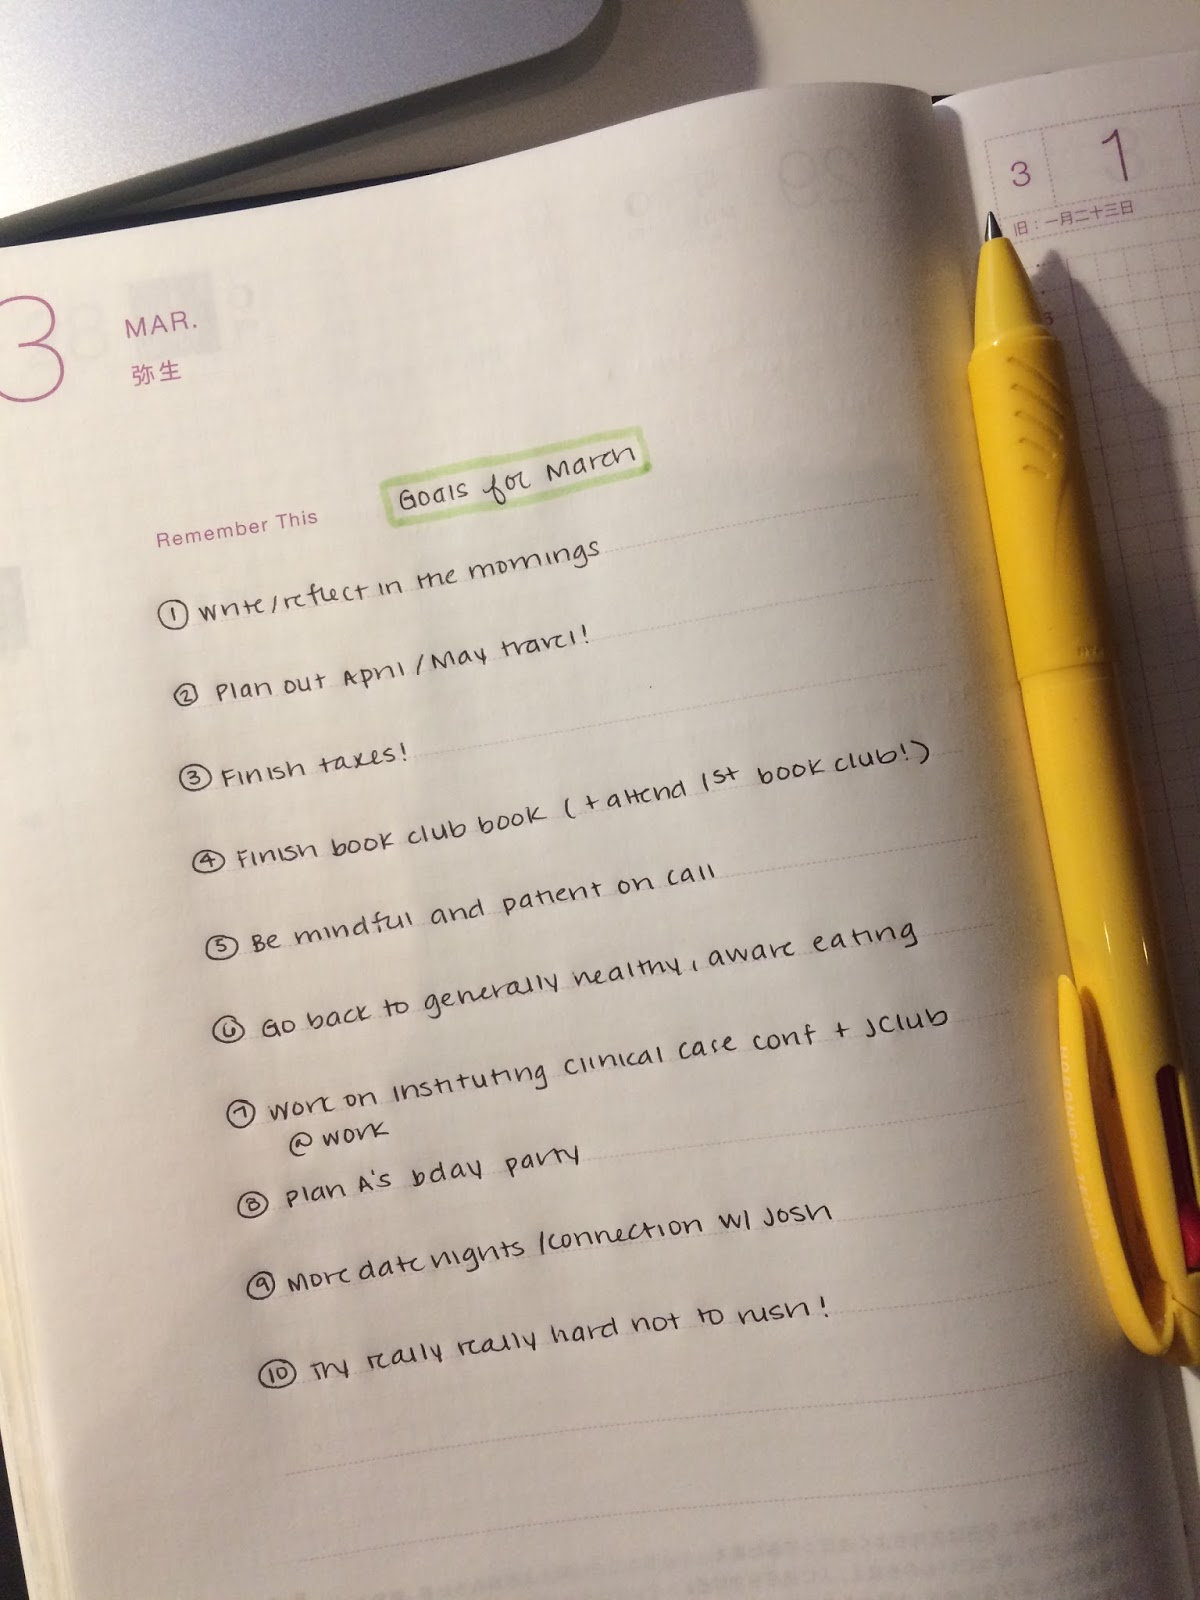 3
MAR.
弥生
Goals for March
Remember This
① Write/reflect in the mornings
② Plan out April/May travel!
③ Finish taxes!
④ Finish book club book (+ attend 1st book club!)
⑤ Be mindful and patient on call
⑥ Go back to generally healthy, aware eating
⑦ Work on instituting clinical case conf + JClub
@ work
⑧ Plan A's bday party
⑨ More date nights/connection w/ Josh
⑩ Try really really hard not to rush!
3 1
旧:一月二十三日